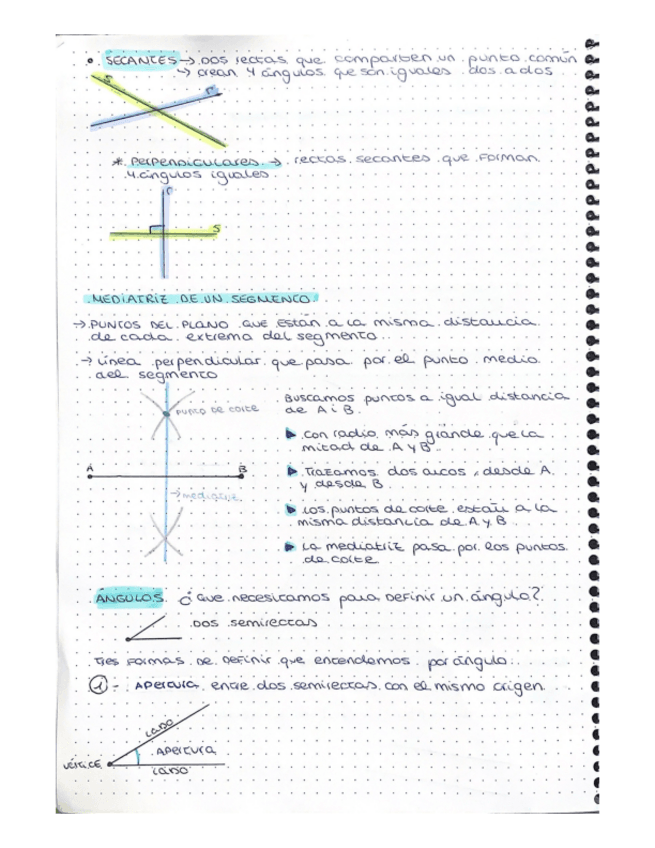 • SECANTES → Dos rectas que comparten un punto común
↳ crean 4 ángulos que son iguales dos a dos
s
r
* Perpendiculares → rectas secantes que forman
4 ángulos iguales
r
s
MEDIATRIZ DE UN SEGMENTO
→ PUNTOS DEL PLANO QUE ESTÁN A LA misma distancia
de cada extremo del segmento
→ Línea perpendicular que pasa por el punto medio
del segmento
PUNTO DE CORTE
A
B
→ mediatriz
Buscamos puntos a igual distancia
de A i B
▶ Con radio más grande que la
mitad de A y B
▶ Trazamos dos arcos, desde A
y desde B
▶ Los puntos de corte están a la
misma distancia de A y B
▶ La mediatriz pasa por los puntos
de corte
ÁNGULOS ¿Que necesitamos para definir un ángulo?
Dos semirectas
Tres formas de definir que entendemos por ángulo
1 - Apertura entre dos semirectas con el mismo origen
lado
Apertura
vértice
lado